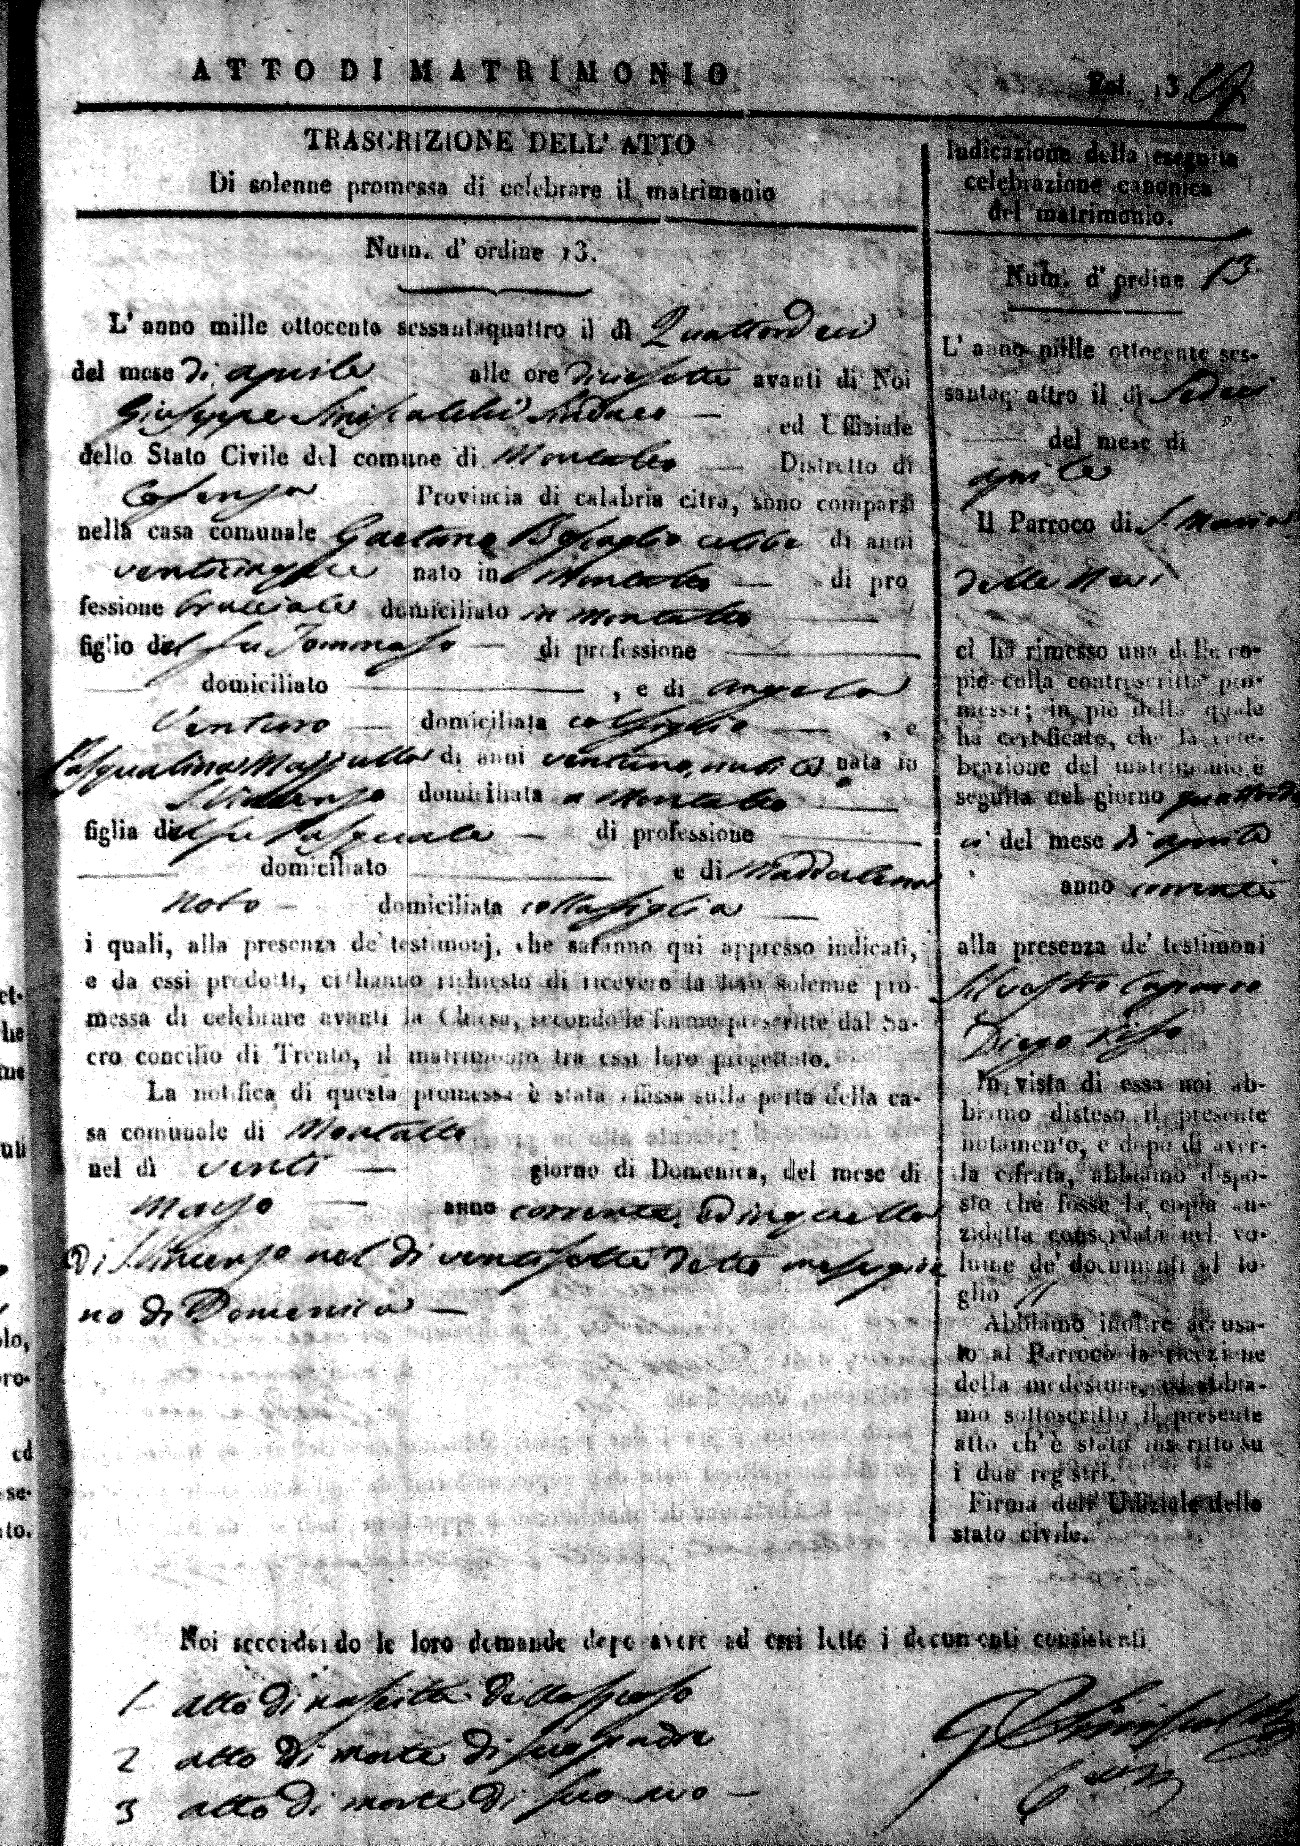 ATTO DI MATRIMONIO
TRASCRIZIONE DELL' ATTO
Di solenne promessa di celebrare il matrimonio
Num. d' ordine 13.
L' anno mille ottocento sessantaquattro il dì Quattordeci
del mese di aprile alle ore diciesette avanti di Noi
Giuseppe Siniscalchi Sindaco ed Uffiziale
dello Stato Civile del comune di Montalto Distretto di
Cosenza Provincia di calabria citra, sono comparsi
nella casa comunale Gaetano celibe di anni
venticinque nato in Montalto di pro
fessione bracciale domiciliato in Montalto
figlio del fu Tommaso di professione
domiciliato , e di Angela
Venturo domiciliata col figlio , e
Pasqualina Mazzulla di anni ventuno, nubile nata in
S. Vincenzo domiciliata a Montalto
figlia del fu Pasquale di professione
domiciliato e di Maddalena
Noto domiciliata colla figlia
i quali, alla presenza de' testimonj, che saranno qui appresso indicati,
e da essi prodotti, ci hanno richiesto di ricevere la loro solenne pro-
messa di celebrare avanti la Chiesa, secondo le forme prescritte dal Sa-
cro concilio di Trento, il matrimonio tra essi loro progettato.
La notifica di questa promessa è stata affissa sulla porta della ca-
sa comunale di Montalto
nel dì venti giorno di Domenica, del mese di
Marzo anno corrente, ed in quella
di S. Vincenzo nel dì ventisette detto mese gior
no di Domenica
Noi secondando le loro domande dopo avere ad essi letto i documenti consistenti
1 atto di nascita dello sposo
2 atto di morte di suo padre
3 atto di morte di suo avo
Indicazione della eseguita
celebrazione canonica
del matrimonio.
Num. d' ordine 13
L' anno mille ottocento ses-
santaquattro il dì Sedeci
del mese di
aprile
Il Parroco di S. Maria
della
ci ha rimesso una delle co-
pie colla controscritta pro-
messa; in piè della quale
ha certificato, che la cele-
brazione del matrimonio è
seguita nel giorno quattorde
ci del mese di aprile
anno corrente
alla presenza de' testimoni
Silvestro
Diego
In vista di essa noi ab-
biamo disteso il presente
notamento, e dopo di aver-
la cifrata, abbiamo dispo-
sto che fosse la copia an-
zidetta conservata nel vo-
lume de' documenti al fo-
glio 11
Abbiamo inoltre accusa-
to al Parroco la ricezione
della medesima, ed abbia-
mo sottoscritto il presente
atto ch'è stato inscritto su
i due registri.
Firma dell' Uffiziale dello
stato civile.
G Siniscalchi